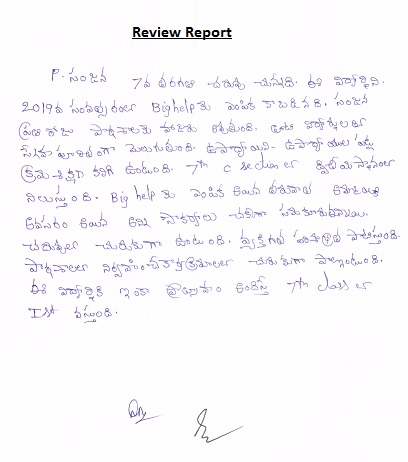 Review Report
P. సంజన 7వ తరగతి చదువు చున్నది. ఈ విద్యార్థిని
2019వ సంవత్సరంలో Big help కు ఎంపిక కాబడినది. సంజన
ప్రతి రోజు పాఠశాలకు హాజరు అవుతుంది. తోటి విద్యార్థులతో
స్నేహ పూరితంగా మెలుగుతుంది. ఉపాధ్యాయిని - ఉపాధ్యాయుల పట్ల
క్రమశిక్షణ కలిగి ఉంటుంది. 7th c section లో ద్వితీయస్థానంలో
నిలుస్తుంది. Big help కు ఎంపిక అయిన తరువాత
అవసరం అయిన అన్ని సౌకర్యాలు చక్కగా
చదువులో చురుకుగా ఉంటుంది. వ్యక్తిగత పరిశుభ్రత పాటిస్తుంది.
పాఠశాలలో నిర్వహించే కార్యక్రమాలలో చురుకుగా పాల్గొంటుంది.
ఈ విద్యార్థికి ఇంకా ప్రోత్సాహం అందిస్తే 7th class లో
Ist వస్తుంది.